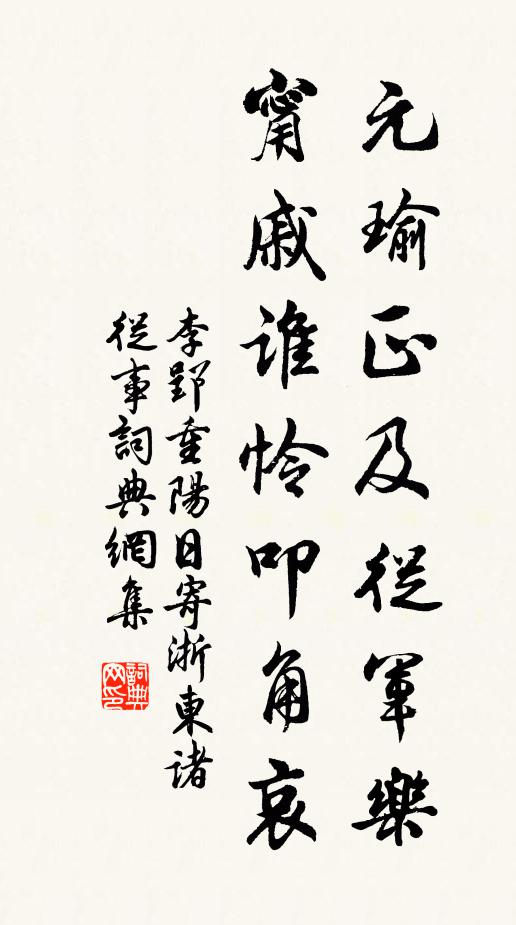 元瑜正及從軍樂
甯戚誰怜叩角哀
李郢重陽日寄浙東諸
從事詞典網集
詞典網印